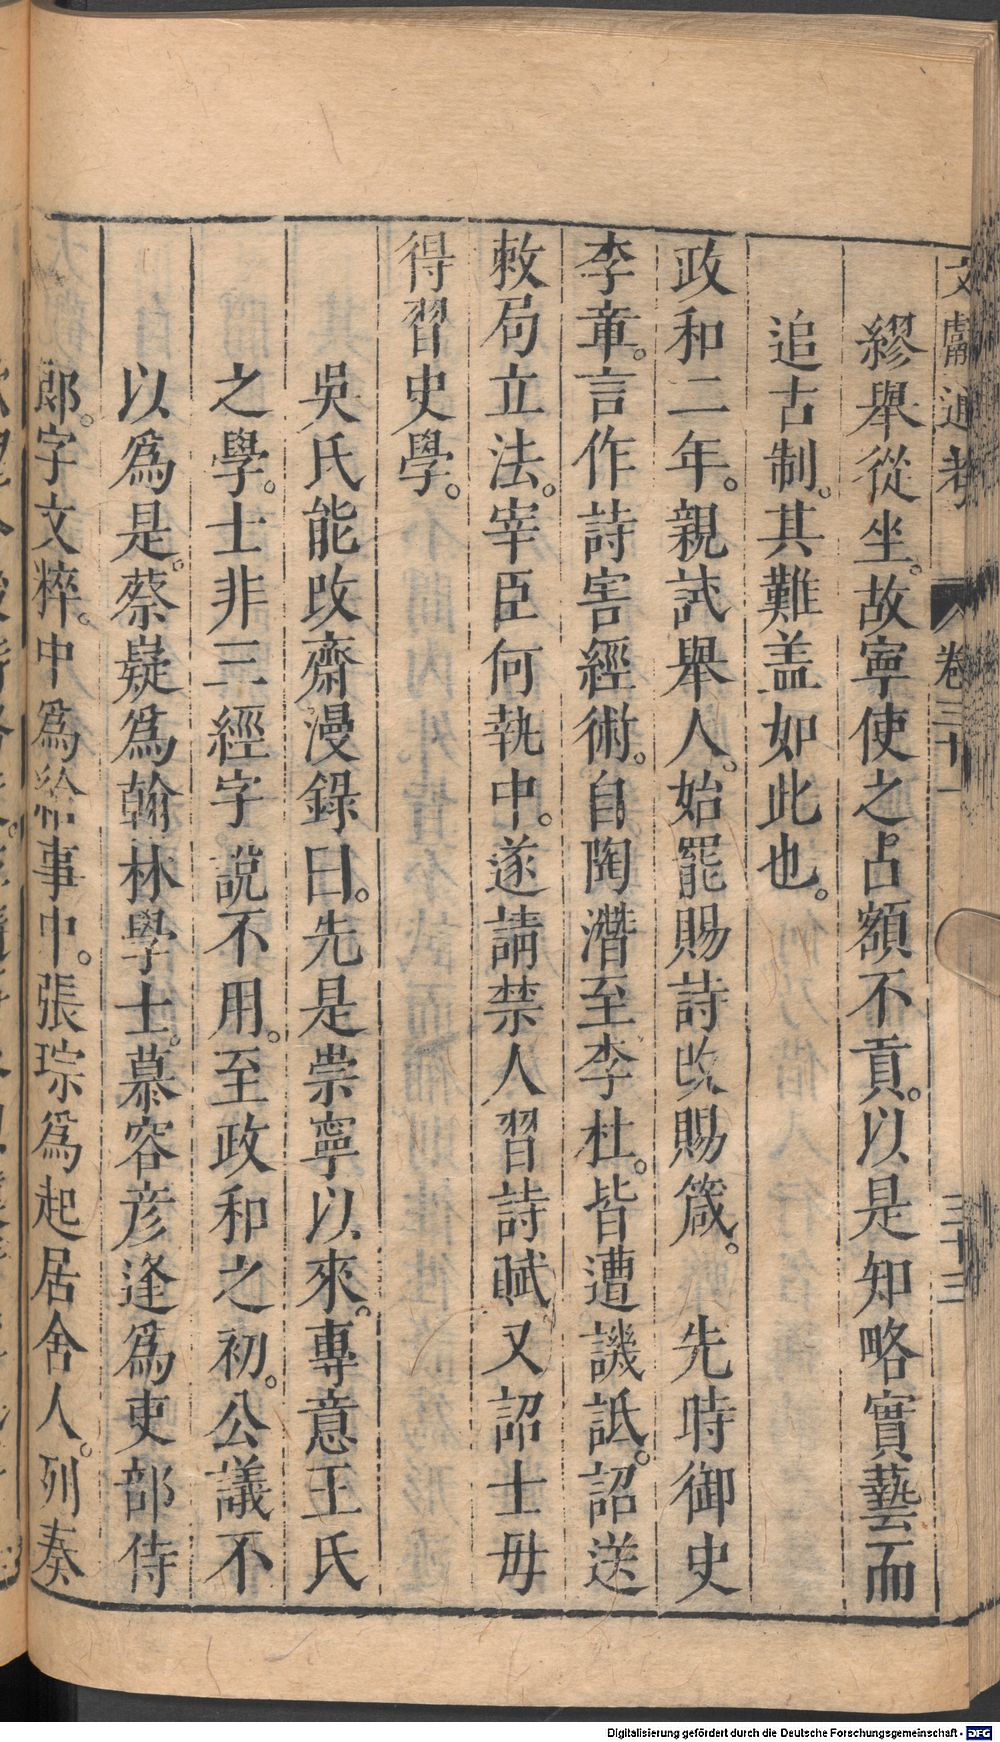 文獻通考 卷三十一 三十三
繆舉從坐。故寧使之占額不貢。以是知略實藝而
追古制。其難盖如此也。
政和二年。親試舉人。始罷賜詩改賜箴。 先時御史
李章。言作詩害經術。自陶潛至李杜。皆遭譏詆。詔送
敕局立法。宰臣何執中。遂請禁人習詩賦又詔士毋
得習史學。
吳氏能改齋漫錄曰。先是崇寧以來。專意王氏
之學。士非三經字說不用。至政和之初。公議不
以爲是。蔡嶷爲翰林學士。慕容彦逢爲吏部侍
郞。字文粹。中爲給事中。張琮爲起居舍人。列奏
Digitalisierung gefördert durch die Deutsche Forschungsgemeinschaft - DFG